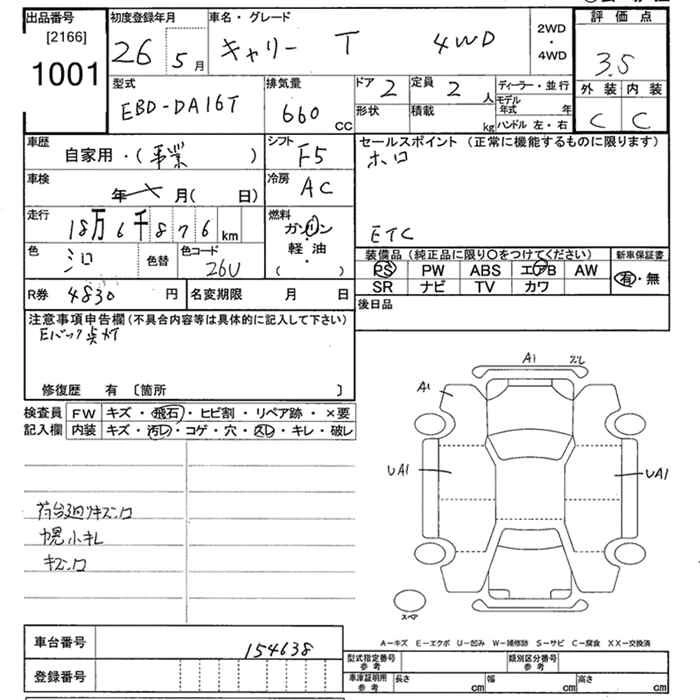 出品番号 初度登録年月 車名・グレード 評価点
[2166]
1001
26年5月 キャリー T 4WD 2WD・4WD 3.5
型式 排気量 ドア 2 定員 2人 ディーラー・並行 外装 内装
EBD-DA16T 660cc 形状 積載 kg モデル年式 年 ハンドル 左・右 C C
車歴 自家用・(事業) シフト F5 セールスポイント (正常に機能するものに限ります)
ホロ
車検 年 月( 日) 冷房 AC
走行 18万6千876km 燃料 ガソリン 軽・油 ・ ( )
ETC
色 シロ 色替 色コード 26U
装備品(純正品に限り○をつけてください) 新車保証書
PS PW ABS エアB AW 有・無
SR ナビ TV カワ
R券 4830円 名変期限 月 日 後日品
注意事項申告欄(不具合内容等は具体的に記入して下さい)
Eバック点灯
修復歴 有 〔箇所 〕
検査員 FW キズ・飛石・ヒビ割・リペア跡・×要
記入欄 内装 キズ・汚レ・コゲ・穴・スレ・キレ・破レ
A1
A1
UA1 UA1
荷台廻リキズシロ
幌小キレ
スペア
車台番号 154638
A-キズ E-エクボ U-凹み W-補修跡 S-サビ C-腐食 XX-交換済
型式指定番号 参考 類別区分番号 参考
登録番号 車庫証明用 参考 長さ cm 幅 cm 高さ cm